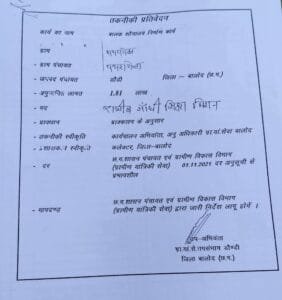 तकनीकी प्रतिवेदन
कार्य का नाम - बालक शौचालय निर्माण कार्य
ग्राम -
ग्राम पंचायत -
जनपद पंचायत - डौंडी जिला :- बालोद
अनुमानित लागत - 1.81 लाख
मद - राजीव गांधी शिक्षा मिशन
प्रावधान - प्राक्कलन के अनुसार
तकनीकी स्वीकृति - कार्यपालन अभियंता, ग्रा.यां.से. बालोद
प्रशासकीय स्वीकृति - कलेक्टर, जिला-बालोद
दर - छ.ग.शासन पंचायत एवं ग्रामीण विकास विभाग
(ग्रामीण यांत्रिकी सेवा) 01.11.2021 दर अनुसूची से
प्रभावशील
मापदण्ड - छ.ग.शासन पंचायत एवं ग्रामीण विकास विभाग
(ग्रामीण यांत्रिकी सेवा) द्वारा जारी निर्देश लागू होंगे ।
उप-अभियंता
ग्रा.यां.से.उपसंभाग डौण्डी
जिला बालोद (छ.ग.)